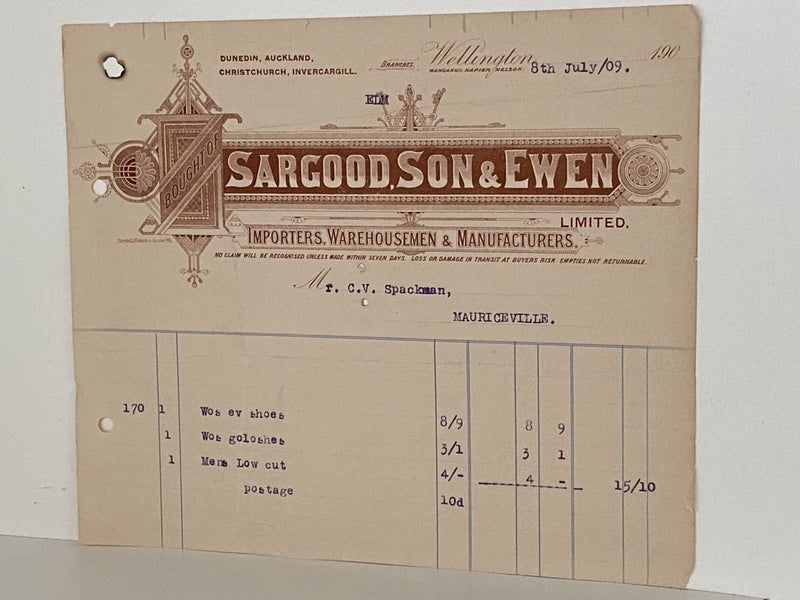 DUNEDIN, AUCKLAND,
CHRISTCHURCH, INVERCARGILL.
BRANCHES. Wellington 190
WANGANUI, NAPIER, NELSON. 8th July/09.
ELM
BOUGHT OF
SARGOOD, SON & EWEN
LIMITED.
IMPORTERS, WAREHOUSEMEN & MANUFACTURERS.
NO CLAIM WILL BE RECOGNISED UNLESS MADE WITHIN SEVEN DAYS. LOSS OR DAMAGE IN TRANSIT AT BUYERS RISK EMPTIES NOT RETURNABLE.
Mr. C.V. Spackman,
MAURICEVILLE.
170 1 Wos ev shoes 8/9 8 9
1 Wos goloshes 3/1 3 1
1 Mens Low cut 4/- 4 - 15/10
postage 10d